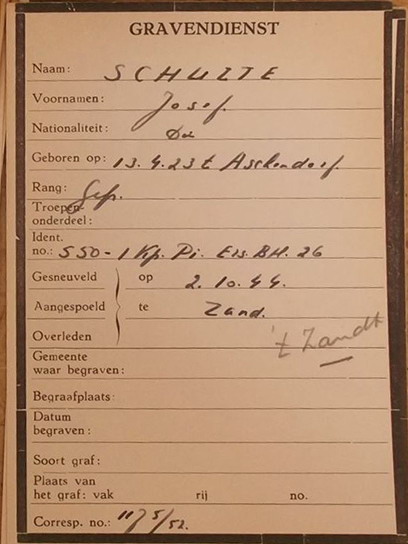 GRAVENDIENST
Naam: SCHULTE
Voornamen: Josef.
Nationaliteit: Du
Geboren op: 13.4.23 t Asschendorf.
Rang: Gefr.
Troepen-
onderdeel:
Ident.
no.: 550 - 1 Kp. Pi. Ers. Btl. 26
Gesneuveld op 2.10.44.
Aangespoeld te Zand.
Overleden
't Zandt
Gemeente
waar begraven:
Begraafplaats:
Datum
begraven:
Soort graf:
Plaats van
het graf: vak rij no.
Corresp. no.: 117 5/52.